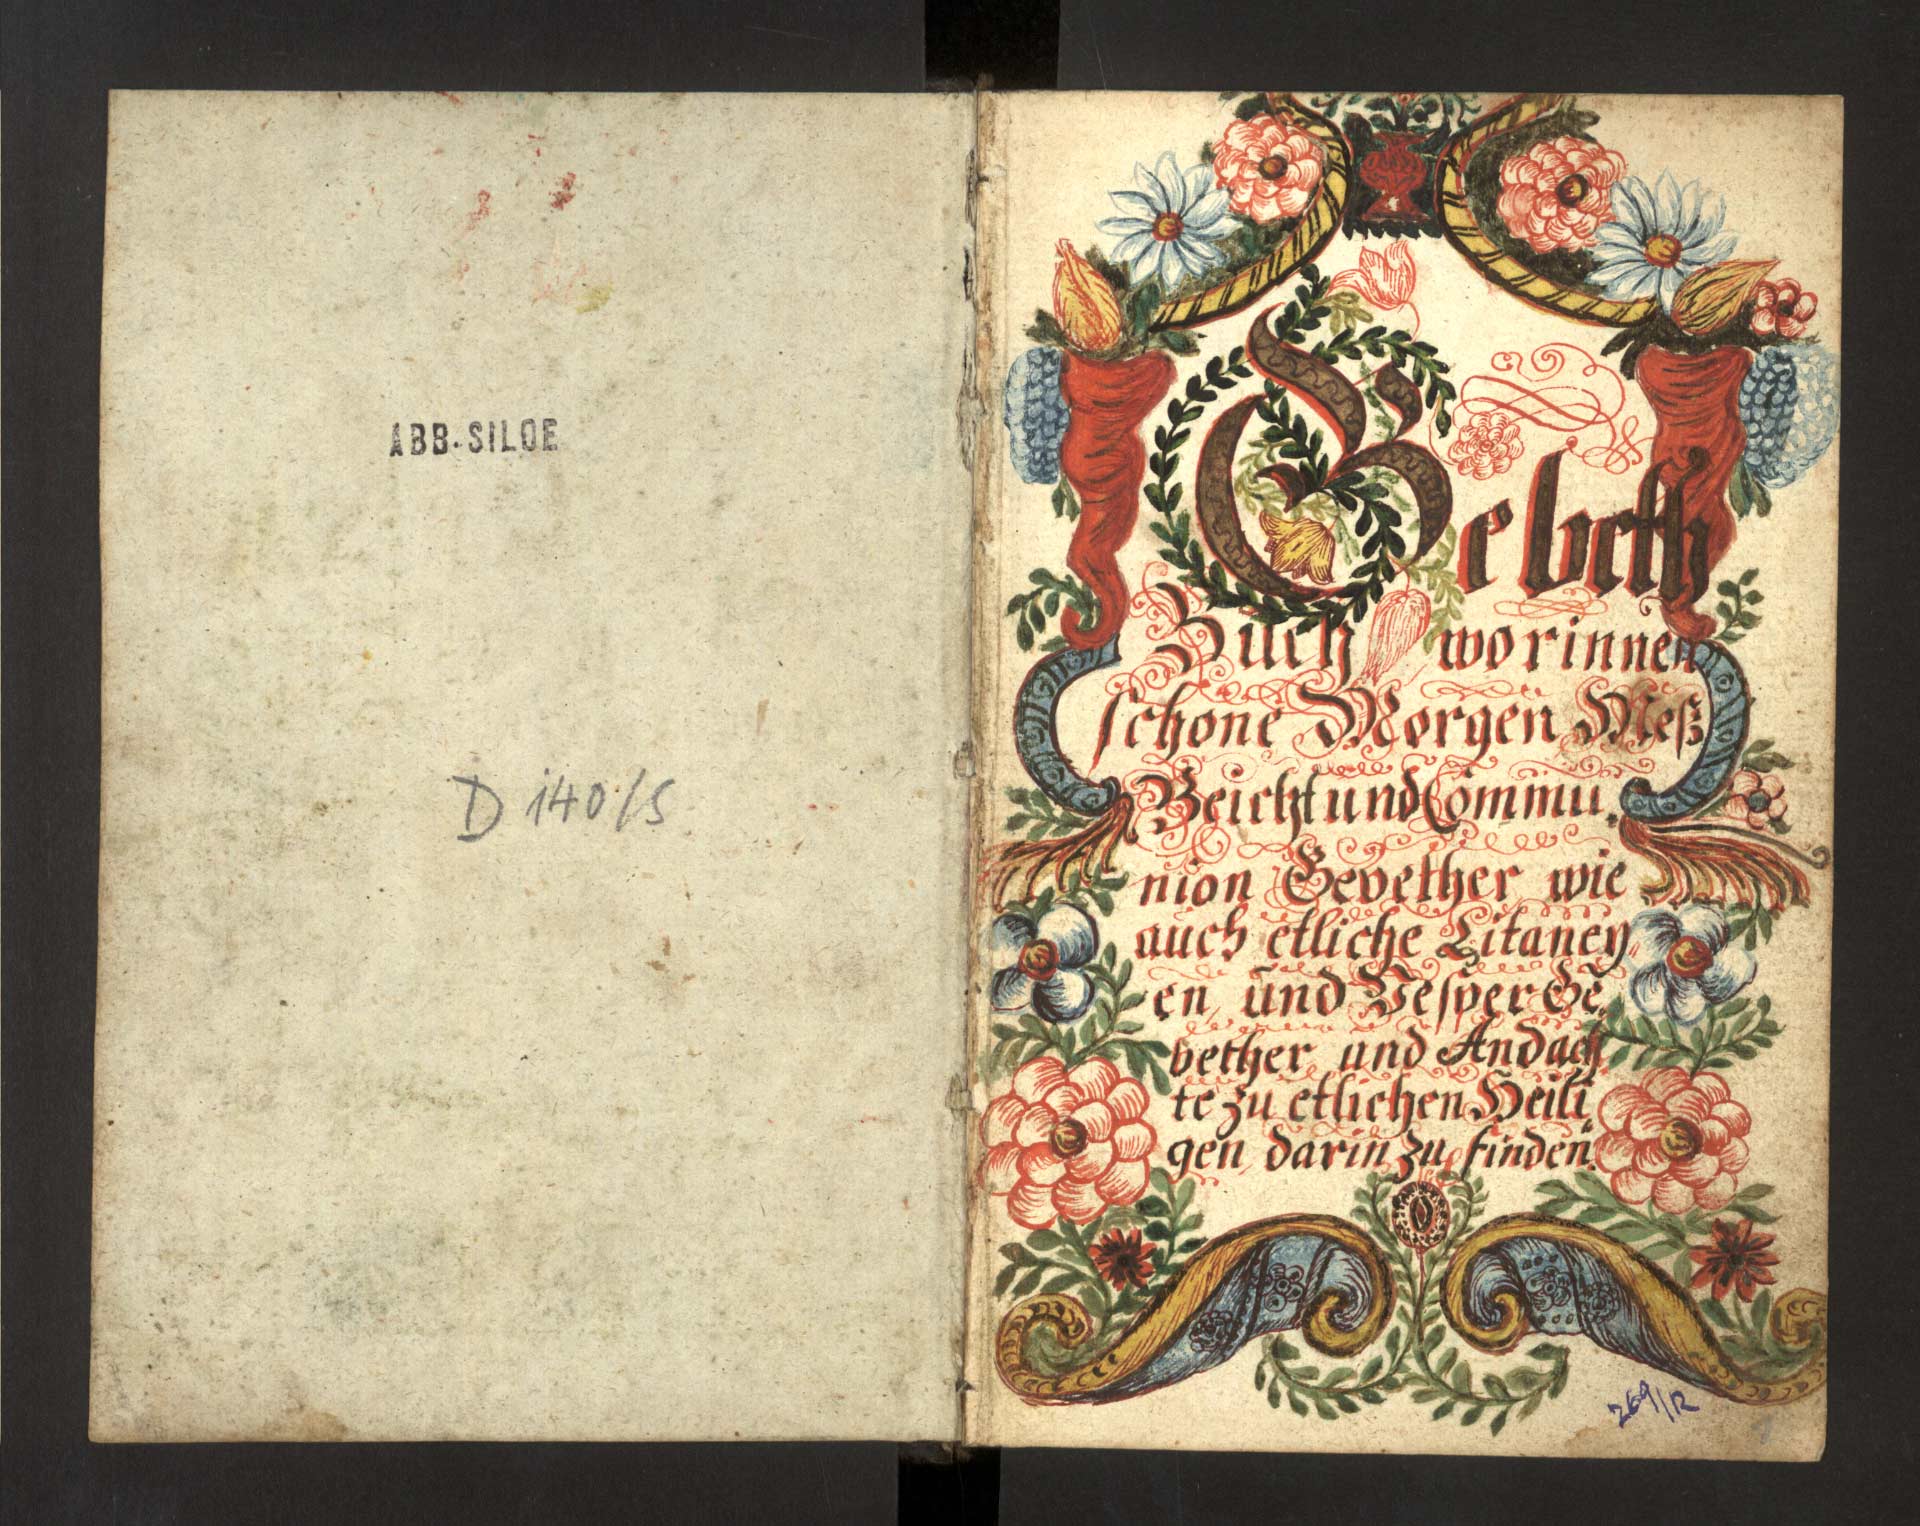 ABB. SILOE
D 140/5
Gebeth
Buch worinnen
schone Morgen Meß
Beicht und Commu,
nion Gebether wie
auch etliche Litaney
en, und Vesper Ge,
bether und Andach
te zu etlichen Heili
gen darin zu finden.
269/12